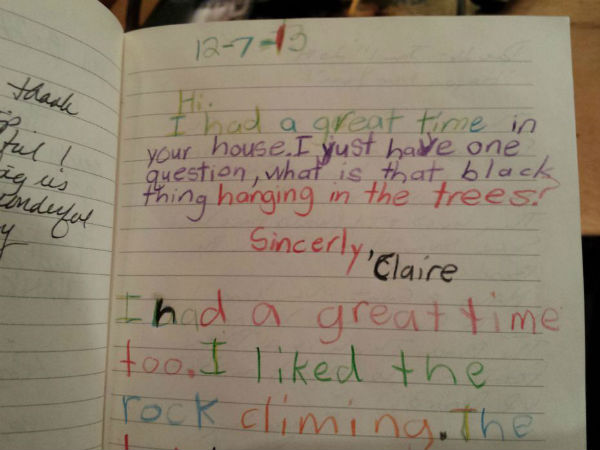 thank
ful!
us
wonderful
12-7-13
Hi.
I had a great time in
your house. I just have one
question, what is that black
thing hanging in the trees?
Sincerly,
Claire
I had a great time
too. I liked the
rock climing. The